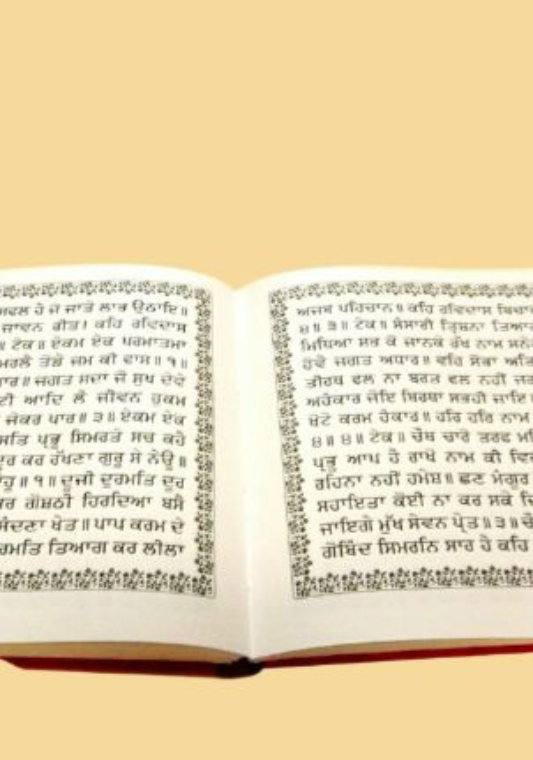 ਹੇ ਜੋ ਜਾਤੇ ਲਾਭ ਉਠਾਇ॥
ਜਾਵਨ ਰੀਤ। ਕਹਿ ਰਵਿਦਾਸ
॥ ਟੇਕ॥ ਏਕਮ ਏਕ ਪਰਮਾਤਮਾ
ਤੋੜੇ ਜਮ ਕੀ ਵਾਸ॥੧॥
॥ ਜਗਤ ਸਦਾ ਜੋ ਸੁਖ ਦੇਵੇ
ਆਦਿ ਲੈ ਜੀਵਨ ਹੁਕਮ
ਜੇਕਰ ਪਾਰ॥੩॥ ਏਕਮ ਏਕ
ਪ੍ਰਭੂ ਸਿਮਰਤੇ ਸਚ ਕਹੇ
ਕਰ ਰੱਖਣਾ ਗੁਰੂ ਸੇ ਨੇਉ॥
॥੧॥ ਦੂਜੀ ਦੁਰਮਤਿ ਦੂਰ
ਕਰ ਗੋਸ਼ਠੀ ਹਿਰਦਿਆ ਬਸੈ
ਖੇਤ॥ ਪਾਪ ਕਰਮ ਦੇ
ਤਿਆਗ ਕਰ ਲੀਲਾ
ਅਜਬ ਪਹਿਚਾਨ॥ ਕਹਿ ਰਵਿਦਾਸ
੪॥੩॥ ਟੇਕ॥ ਸੰਸਾਰੀ ਤ੍ਰਿਸ਼ਨਾ
ਮਿਥਿਆ ਸਭ ਕੋ ਜਾਨਕੇ ਰੱਖ ਨਾਮ
ਹੋਵੇ ਜਗਤ ਅਧਾਰ॥ ਵਹਿ ਸੋਭਾ
ਤੀਰਥ ਫਲ ਨਾ ਬਰਤ ਫਲ ਨਹੀਂ
ਅਹੰਕਾਰ ਜੋਇ ਬਿਰਥਾ ਸਭਹੀ ਜਾਇ॥
ਖੋਟੇ ਕਰਮ ਹੰਕਾਰ॥ ਹਰਿ ਹਰਿ ਨਾਮ
੪॥੪॥ ਟੇਕ॥ ਚੌਥ ਚਾਰੇ ਤਰਫ
ਪ੍ਰਭੂ ਆਪ ਹੈ ਰਾਖੋ ਨਾਮ ਕੀ
ਰਹਿਨਾ ਨਹੀਂ ਹਮੇਸ਼॥ ਛਣ ਭੰਗੁਰ
ਸਹਾਇਤਾ ਕੋਈ ਨਾ ਕਰ ਸਕੇ
ਜਾਇਗੇ ਮੁੱਖ ਸੇਵਨ ਪ੍ਰੇਤ॥੩॥
ਗੋਬਿੰਦ ਸਿਮਰਨਿ ਸਾਰ ਹੈ ਕਹਿ